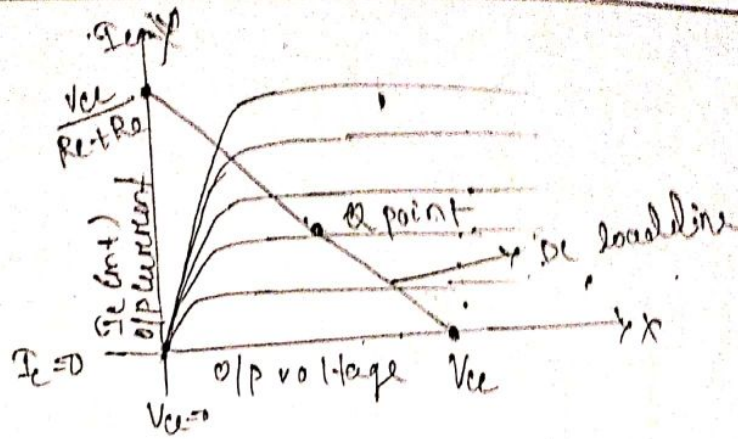 Vcc
Rc+Re
Ic (mt)
o/p current
Q point
DC loadline
X
Ic=0
o/p voltage
Vcc
Vce=0